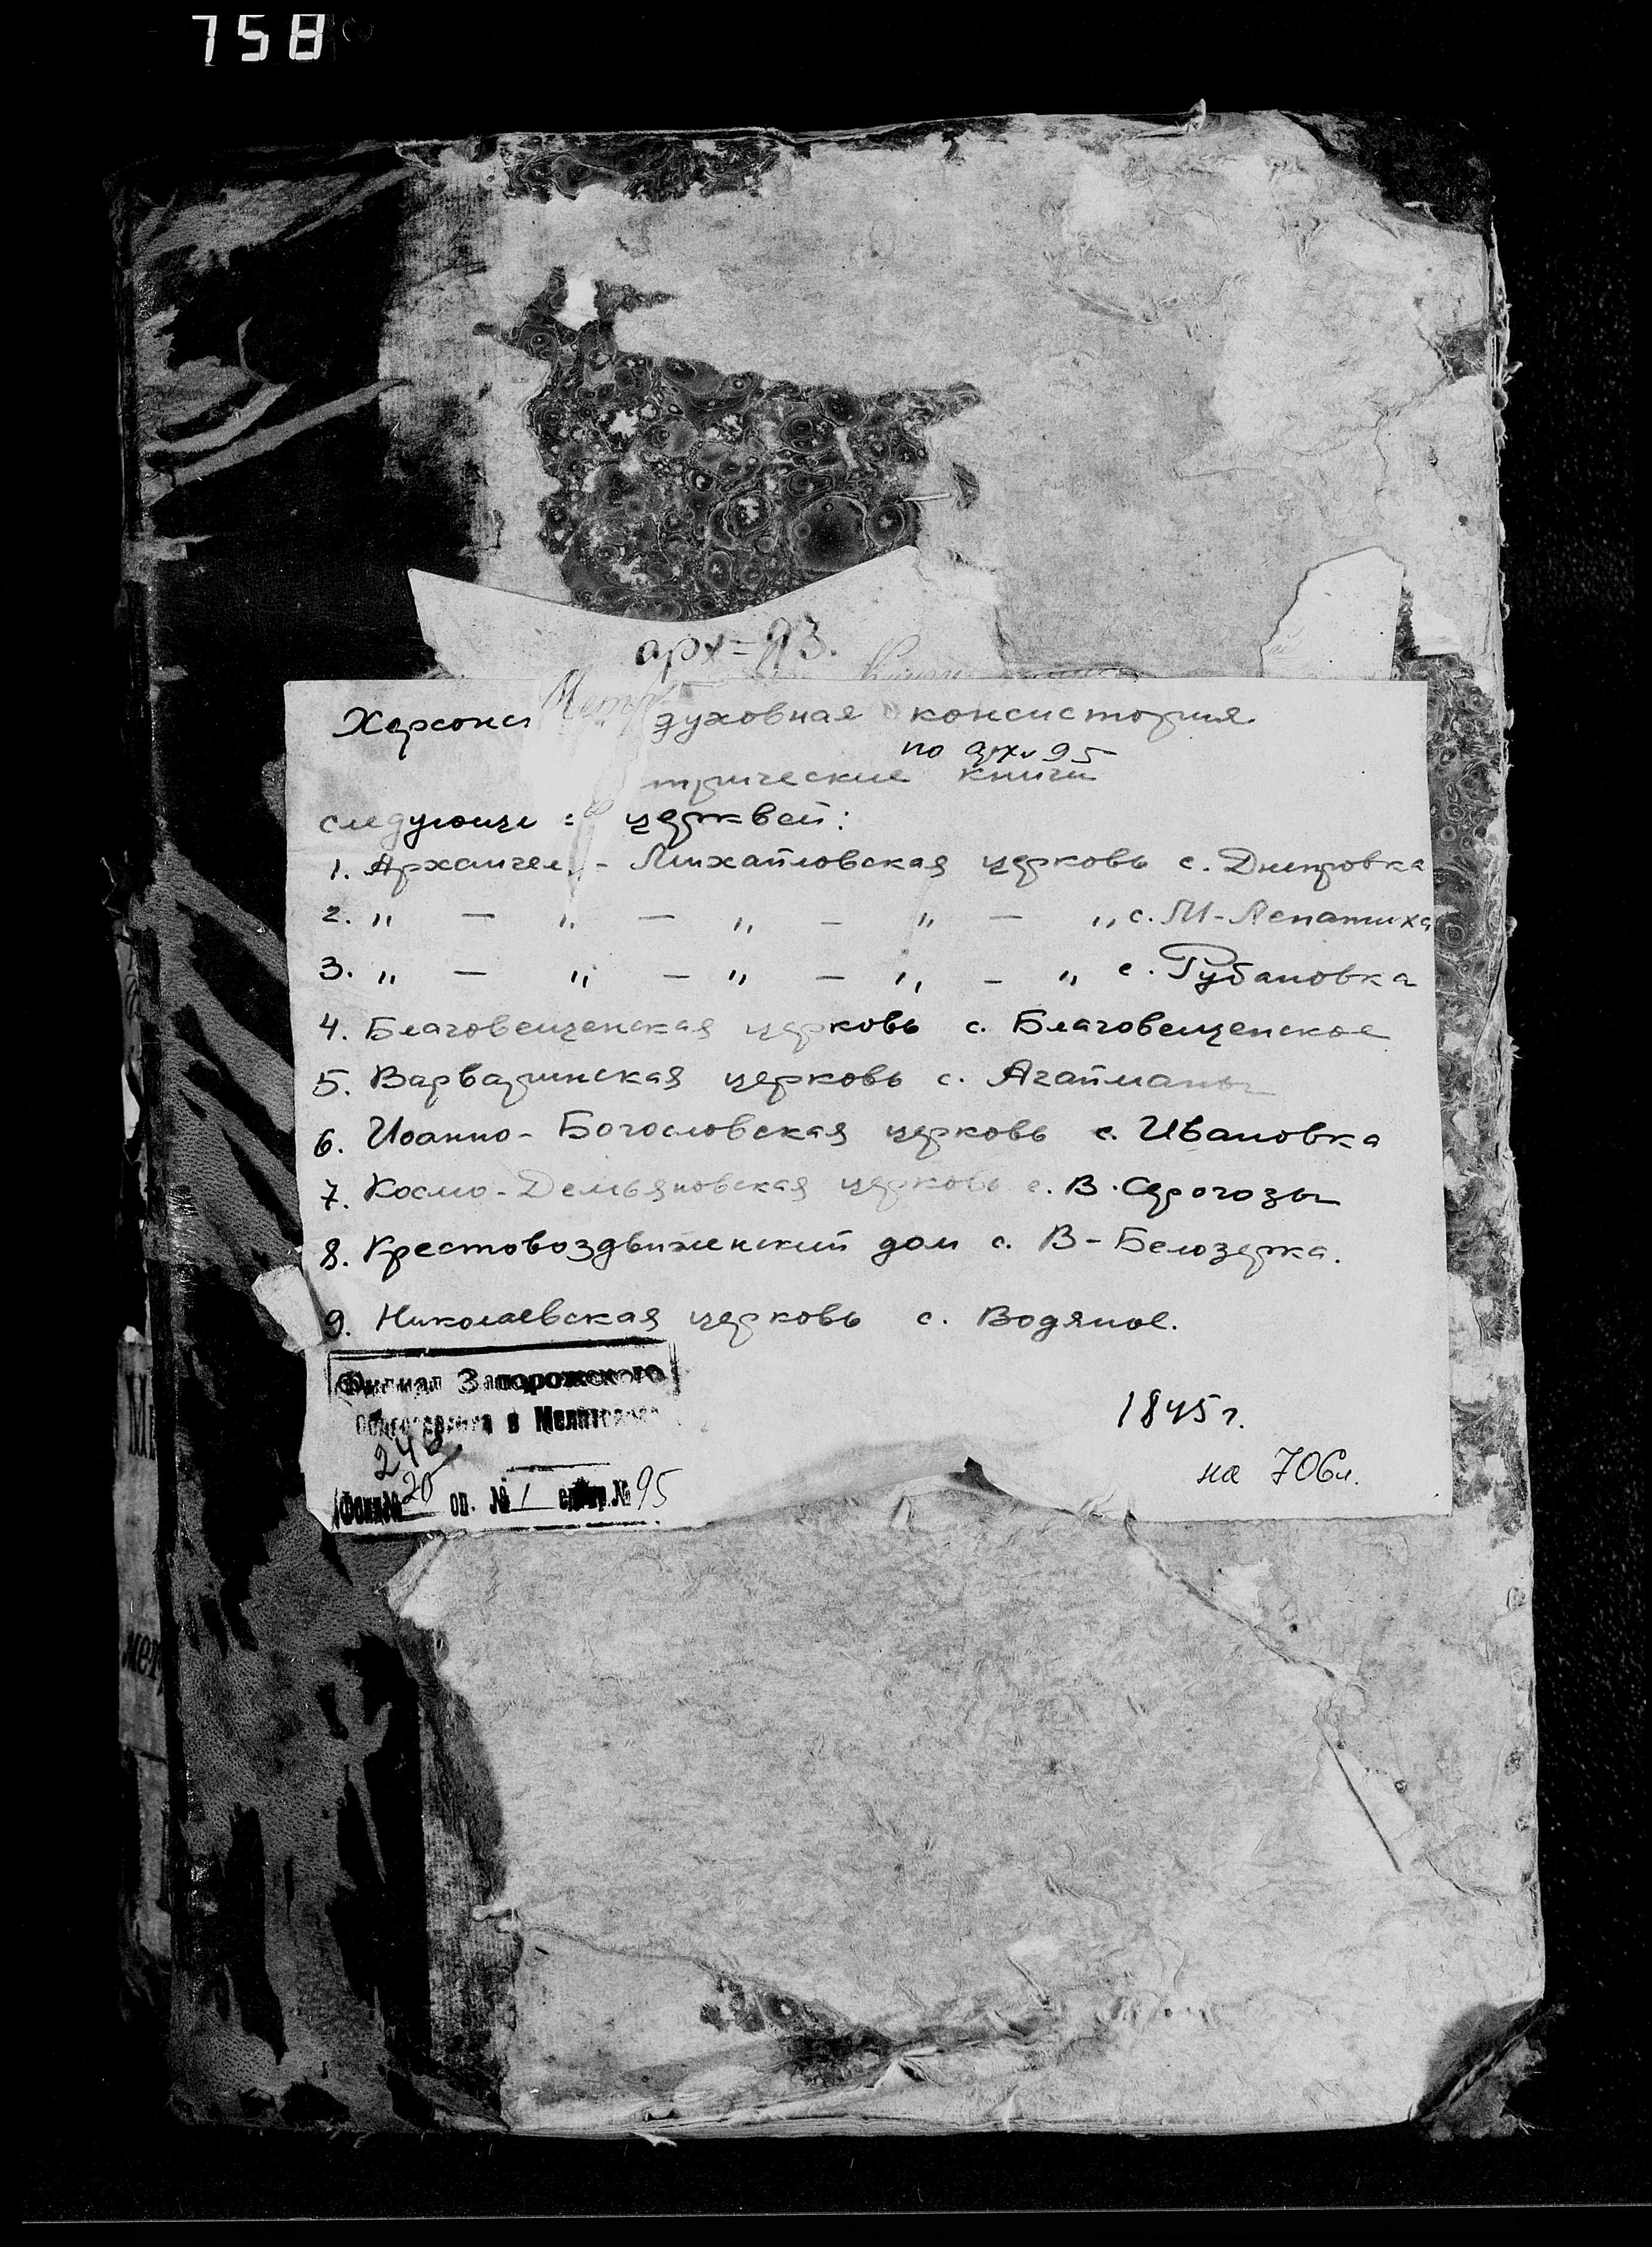 758
арх=93.
Метр
Херсонс духовная консистория
по арх 95
трические книги
следующи церквей:
1. Архангел - Михайловская церковь с. Днепровка
2. " — " — " — " — " с. М-Лепатиха
3. " — " — " — " — " с. Рубановка
4. Благовещенская церковь с. Благовещенское
5. Варваринская церковь с. Агайманы
6. Иоанно-Богословская церковь с. Ивановка
7. Космо-Демьяновская церковь с. В. Серогозы
8. Крестовоздвиженский дом с. В-Белозерка.
9. Николаевская церковь с. Водяное.
Филиал Запорожского
в Мелитополе
1845 г.
24
20
на 706 л.
Фонд № оп. № 1 ед. хр. № 95
мет